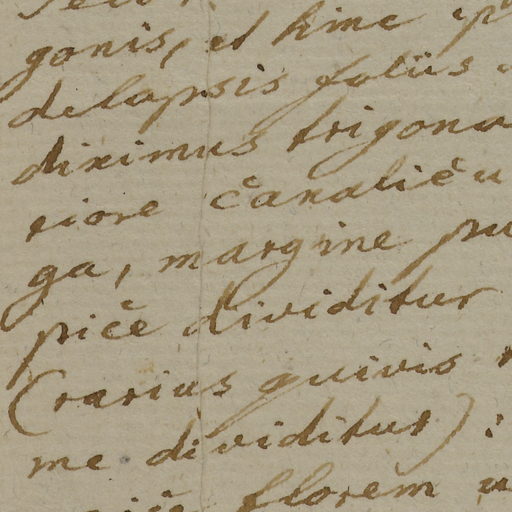 gonis, et hinc
delapsis foliis
diximus trigona
riore canalicu
ga, margine
pice dividitur
(rarius quivis
me dividitur):
florem